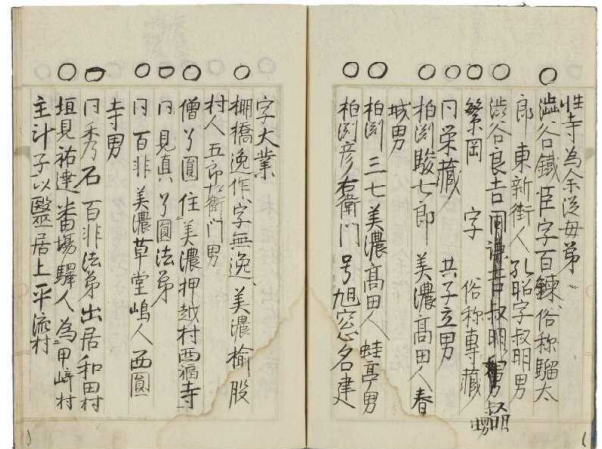 性寺為余從母弟
○澁谷鐵臣字百鍊俗称騮太
郎 東新街人 孔昭字叔明男
○○澁谷良吉 叔明男
○繁岡 字 俗称專藏
○○冃栄藏 共子立男
○柏渕駿七郎 美濃高田人春
城男
○柏渕三七美濃高田人蛙亭男
○柏渕彦右衛門号旭窓名建
字大業
○棚橋逸作字無逸美濃楡股
村人五郎左衛門男
○僧了圓住美濃押越村西福寺
○冃見真了圓法弟
○冃百非美濃草堂嶋人西圓
寺男
○冃秀石百非法弟出居和田村
○垣見祐達番場驛人為甲﨑村
主計子以醫居上平流村